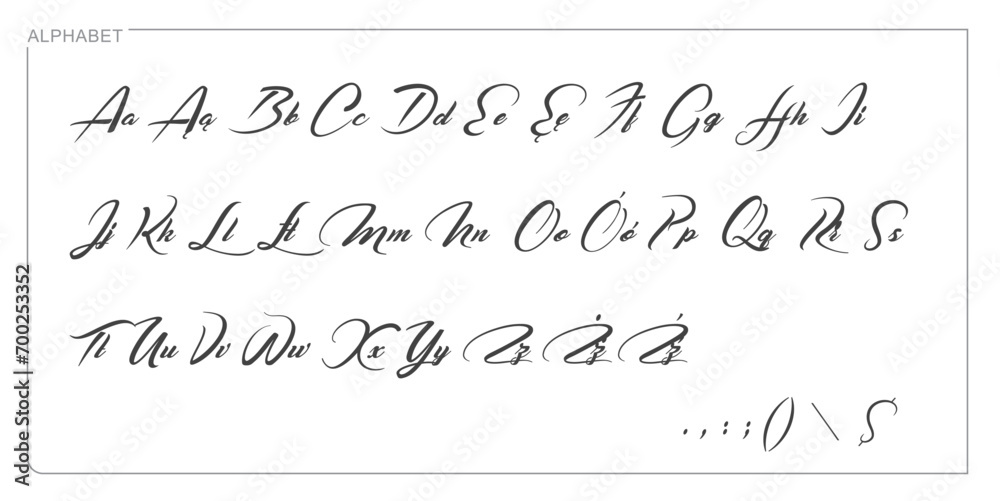 ALPHABET
Aa Ąą Bb Cc Dd Ee Ęę Ff Gg Hh Ii
Jj Kk Ll Łł Mm Nn Oo Óó Pp Qq Rr Ss
Tt Uu Vv Ww Xx Yy Zz Żż Źź
. , : ; () \ $
Adobe Stock | #700253352